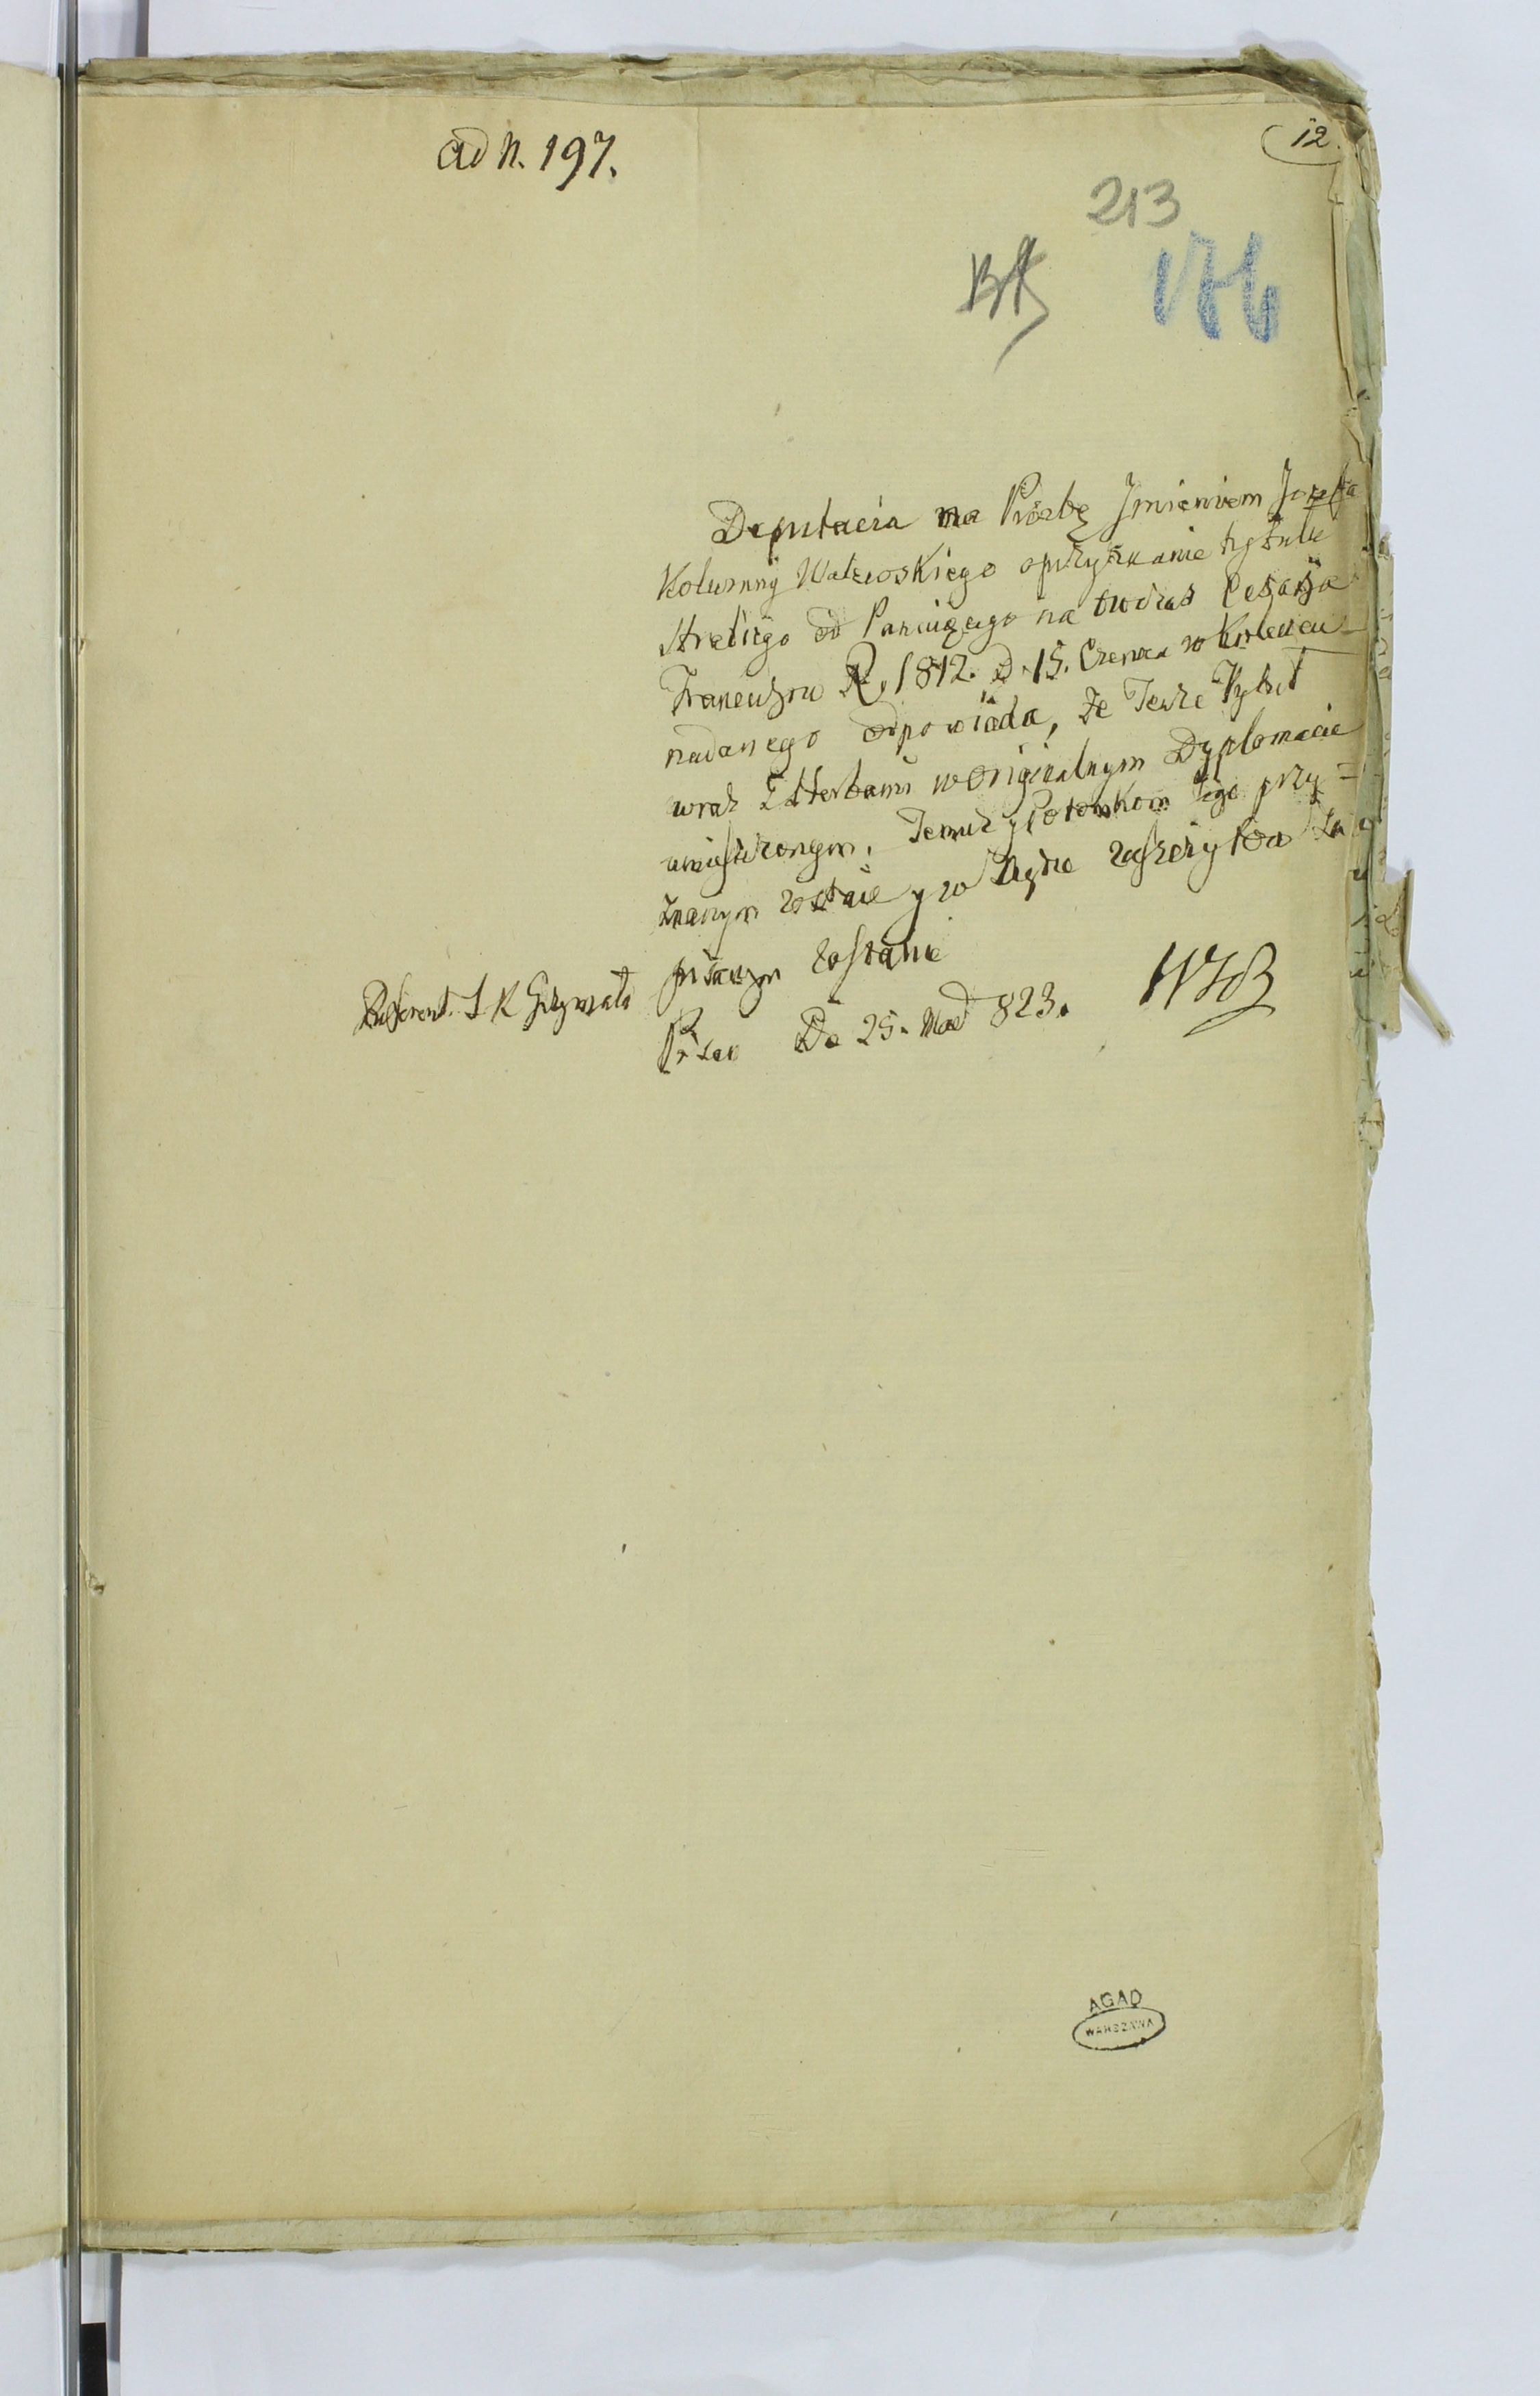 ad N. 197.
12.
213
176
Deputacia na Prozbę Jmieniem Jozefa
Kolumny Walewskiego o przyznanie tytułu
Hrabiego od Panuiącego na owczas Cesarża
Francuzow R. 1812. d. 15. Czerwca w Krolewcu
nadanego odpowiada, że Tenże Tytuł
wraz z Herbami w Originalnym Dyplomacie
umieszczonym, Temuż y Potomkom Jego przy=
znanym zostaie y w Xięgę
pisanym zostanie
Referent J K Grzymała
Dа 25. 823.
AGAD
WARSZAWA